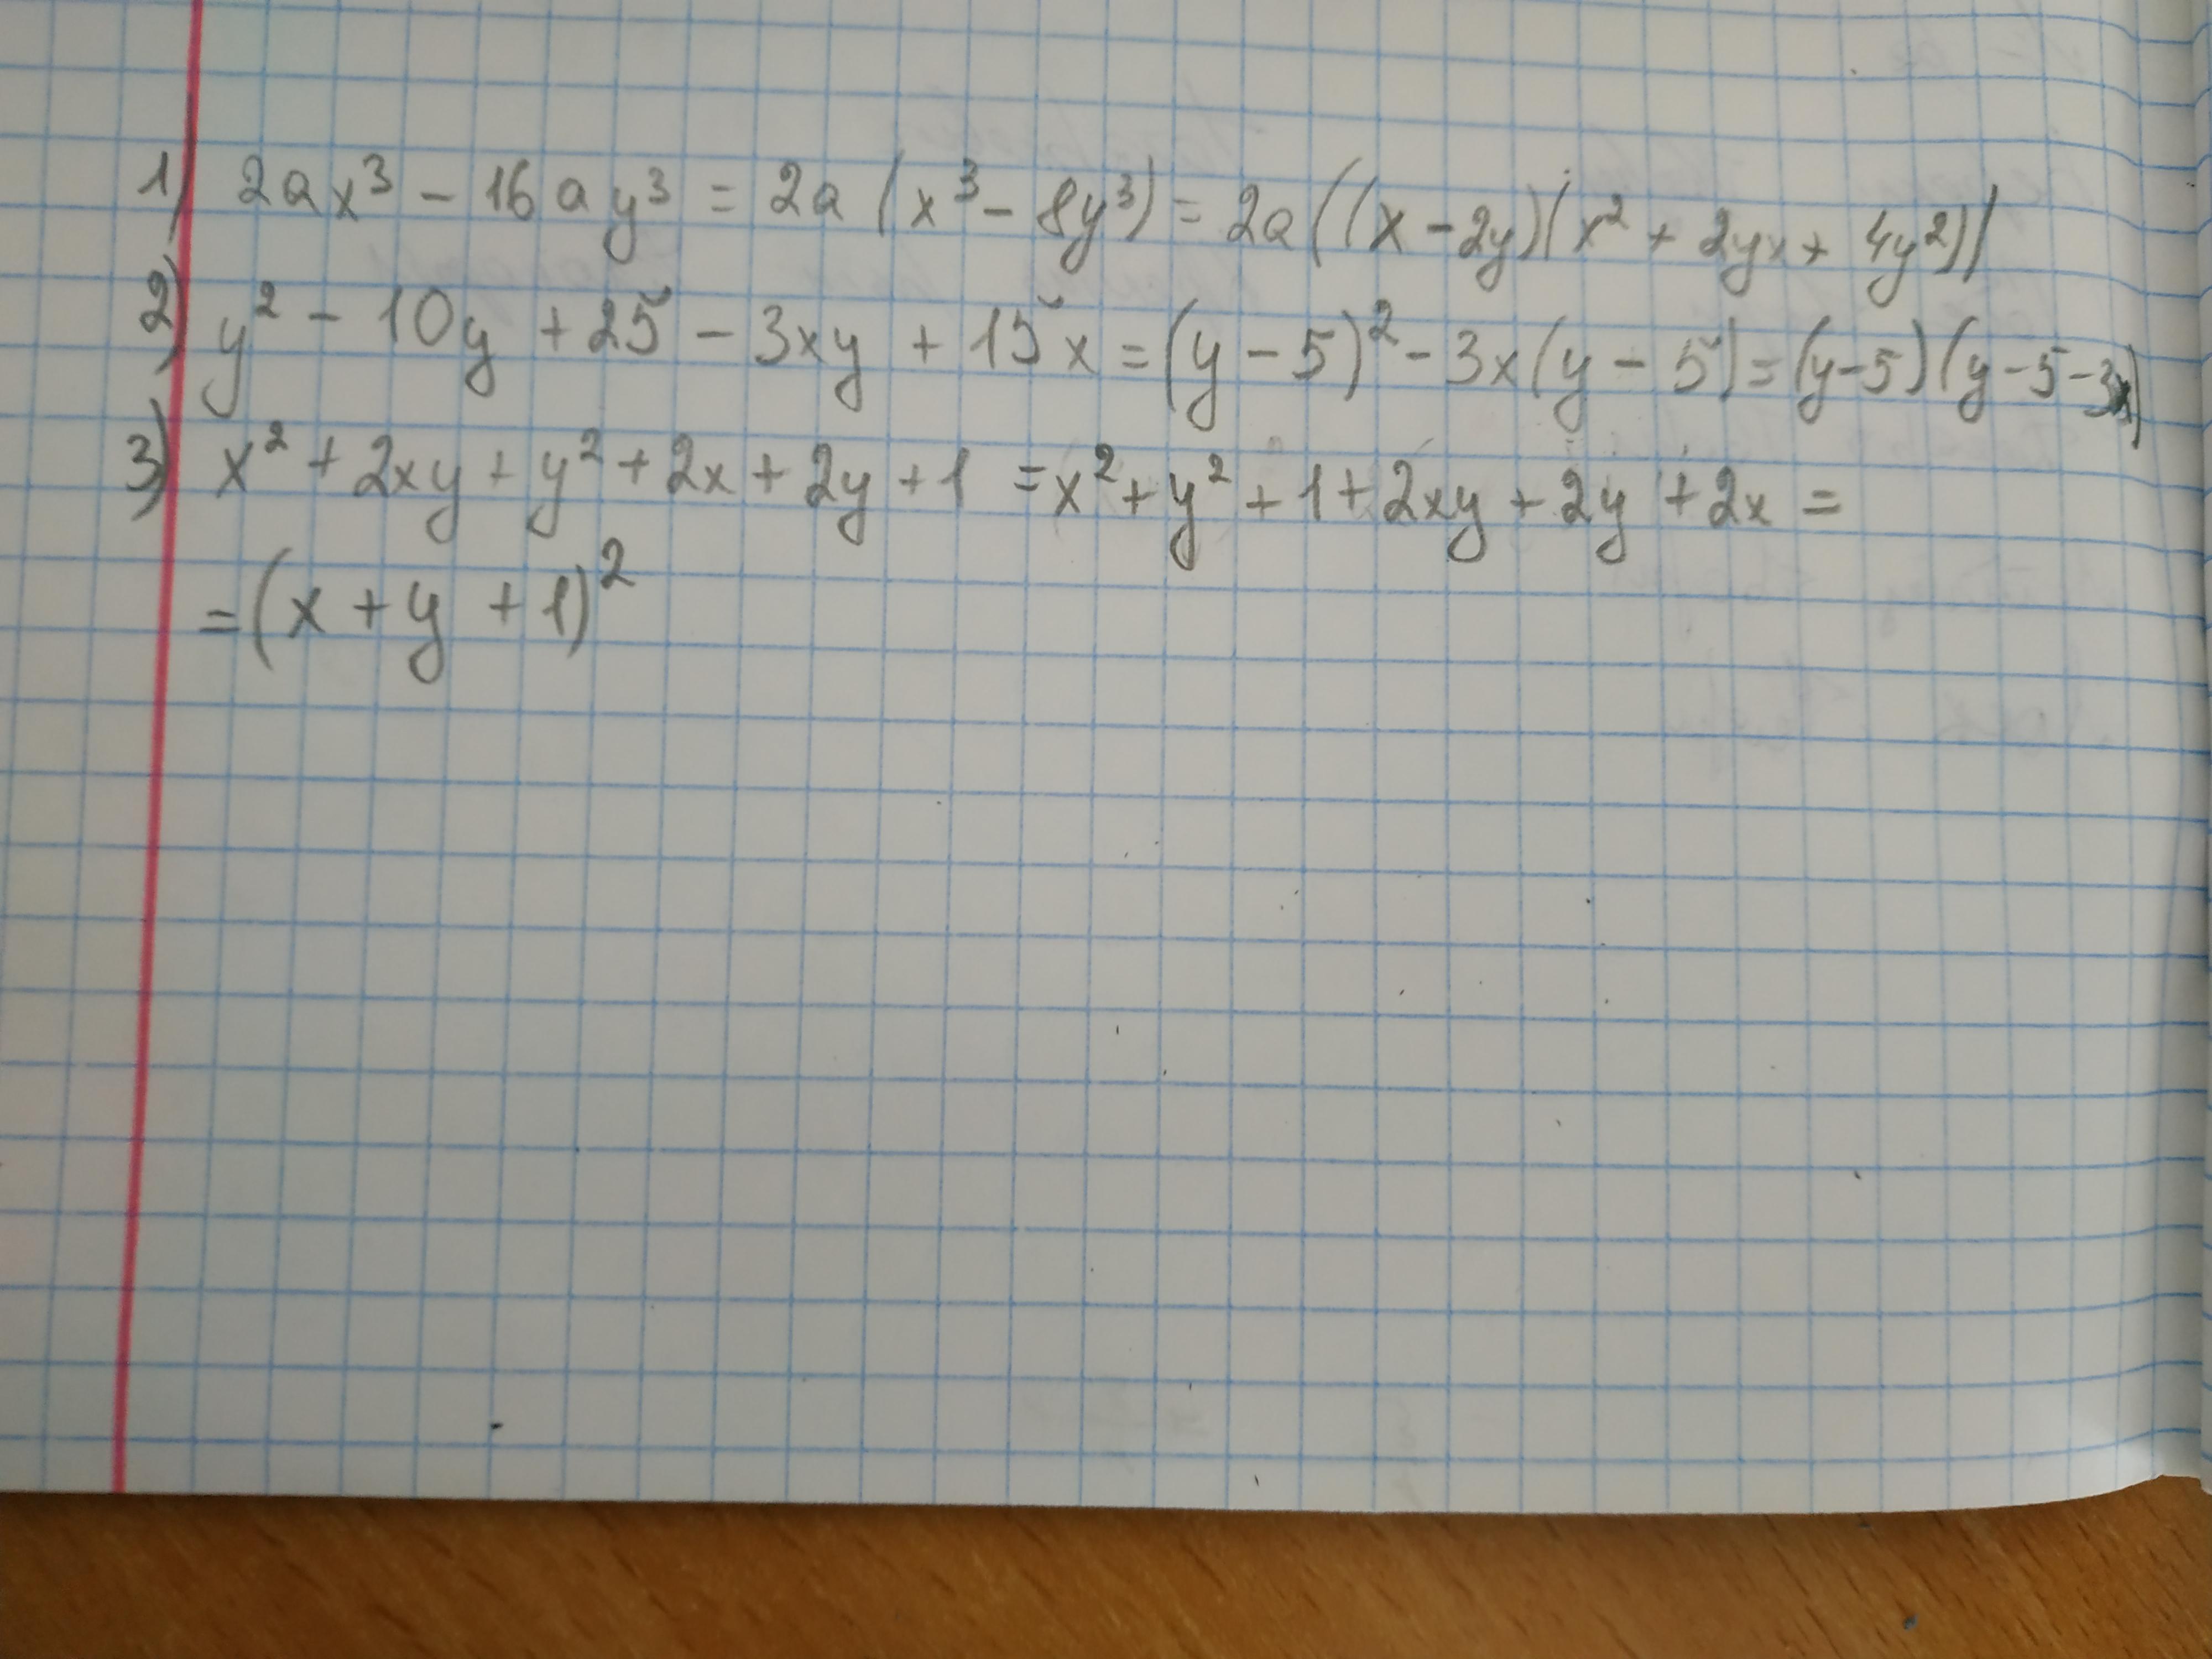 1) 2ax³ - 16ay³ = 2a(x³ - 8y³) = 2a((x - 2y)(x² + 2yx + 4y²))
2) y² - 10y + 25 - 3xy + 15x = (y - 5)² - 3x(y - 5) = (y-5)(y-5-3x)
3) x² + 2xy + y² + 2x + 2y + 1 = x² + y² + 1 + 2xy + 2y + 2x =
= (x + y + 1)²